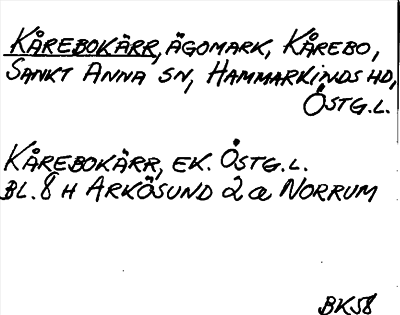 KÅREBOKÄRR, ÄGOMARK, KÅREBO,
SANKT ANNA SN, HAMMARKINDS HD,
ÖSTG.L.
KÅREBOKÄRR, EK. ÖSTG.L.
BL. 8 H ARKÖSUND 2 a NORRUM
BK58